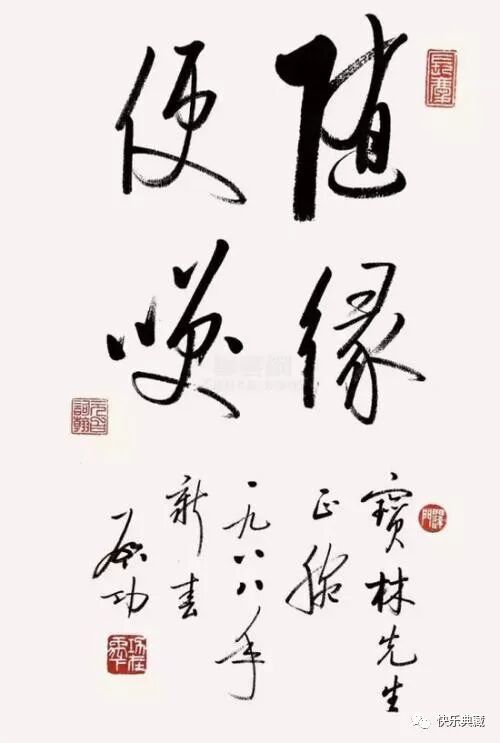 随緣
便咲
寶林先生
正腕
一九八八年
新春
启功
快乐典藏